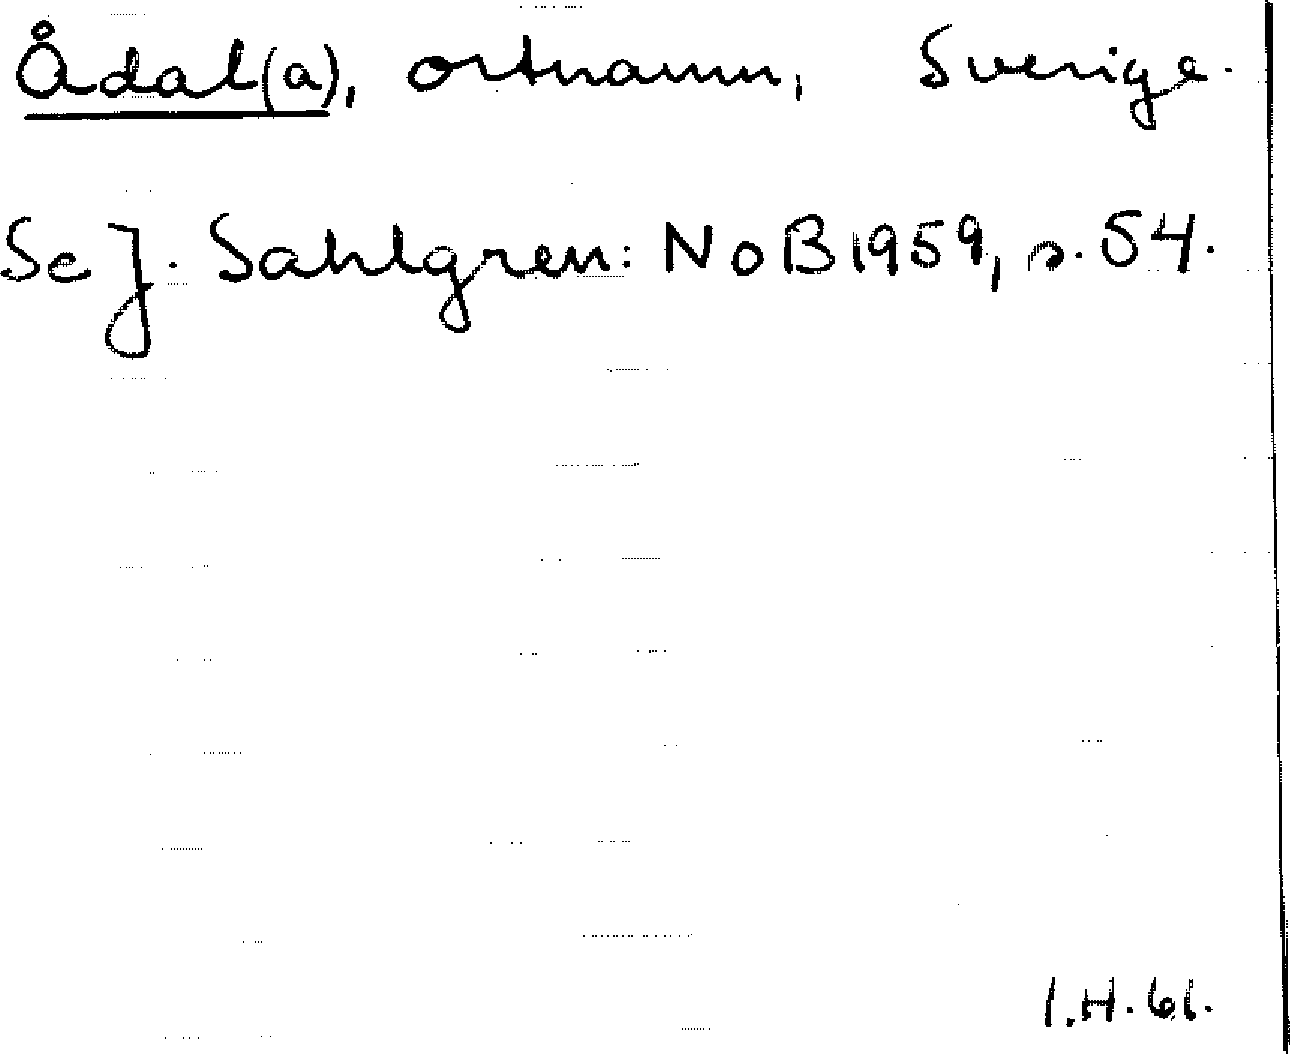 Ådal(a), ortnamn, Sverige.
Se J. Sahlgren: NoB 1959, s. 54.
I.H. 61.